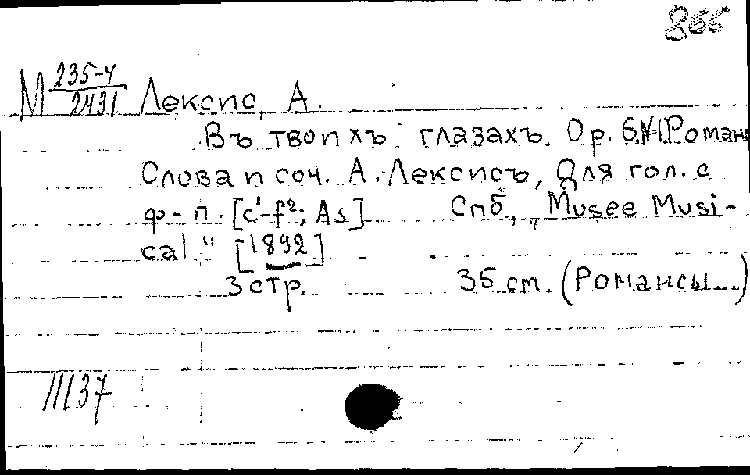 866
М 235-4/2431 Лексис, А.
Въ твоихъ глазахъ. Op. 6. №1. Романс
Слова и соч. А. Лексисъ, Для гол. с
ф-п. [c¹-f²; As] Спб., „Musee Musi-
cal" [1892]
3 стр. 35 см. (Романсы...)
11137